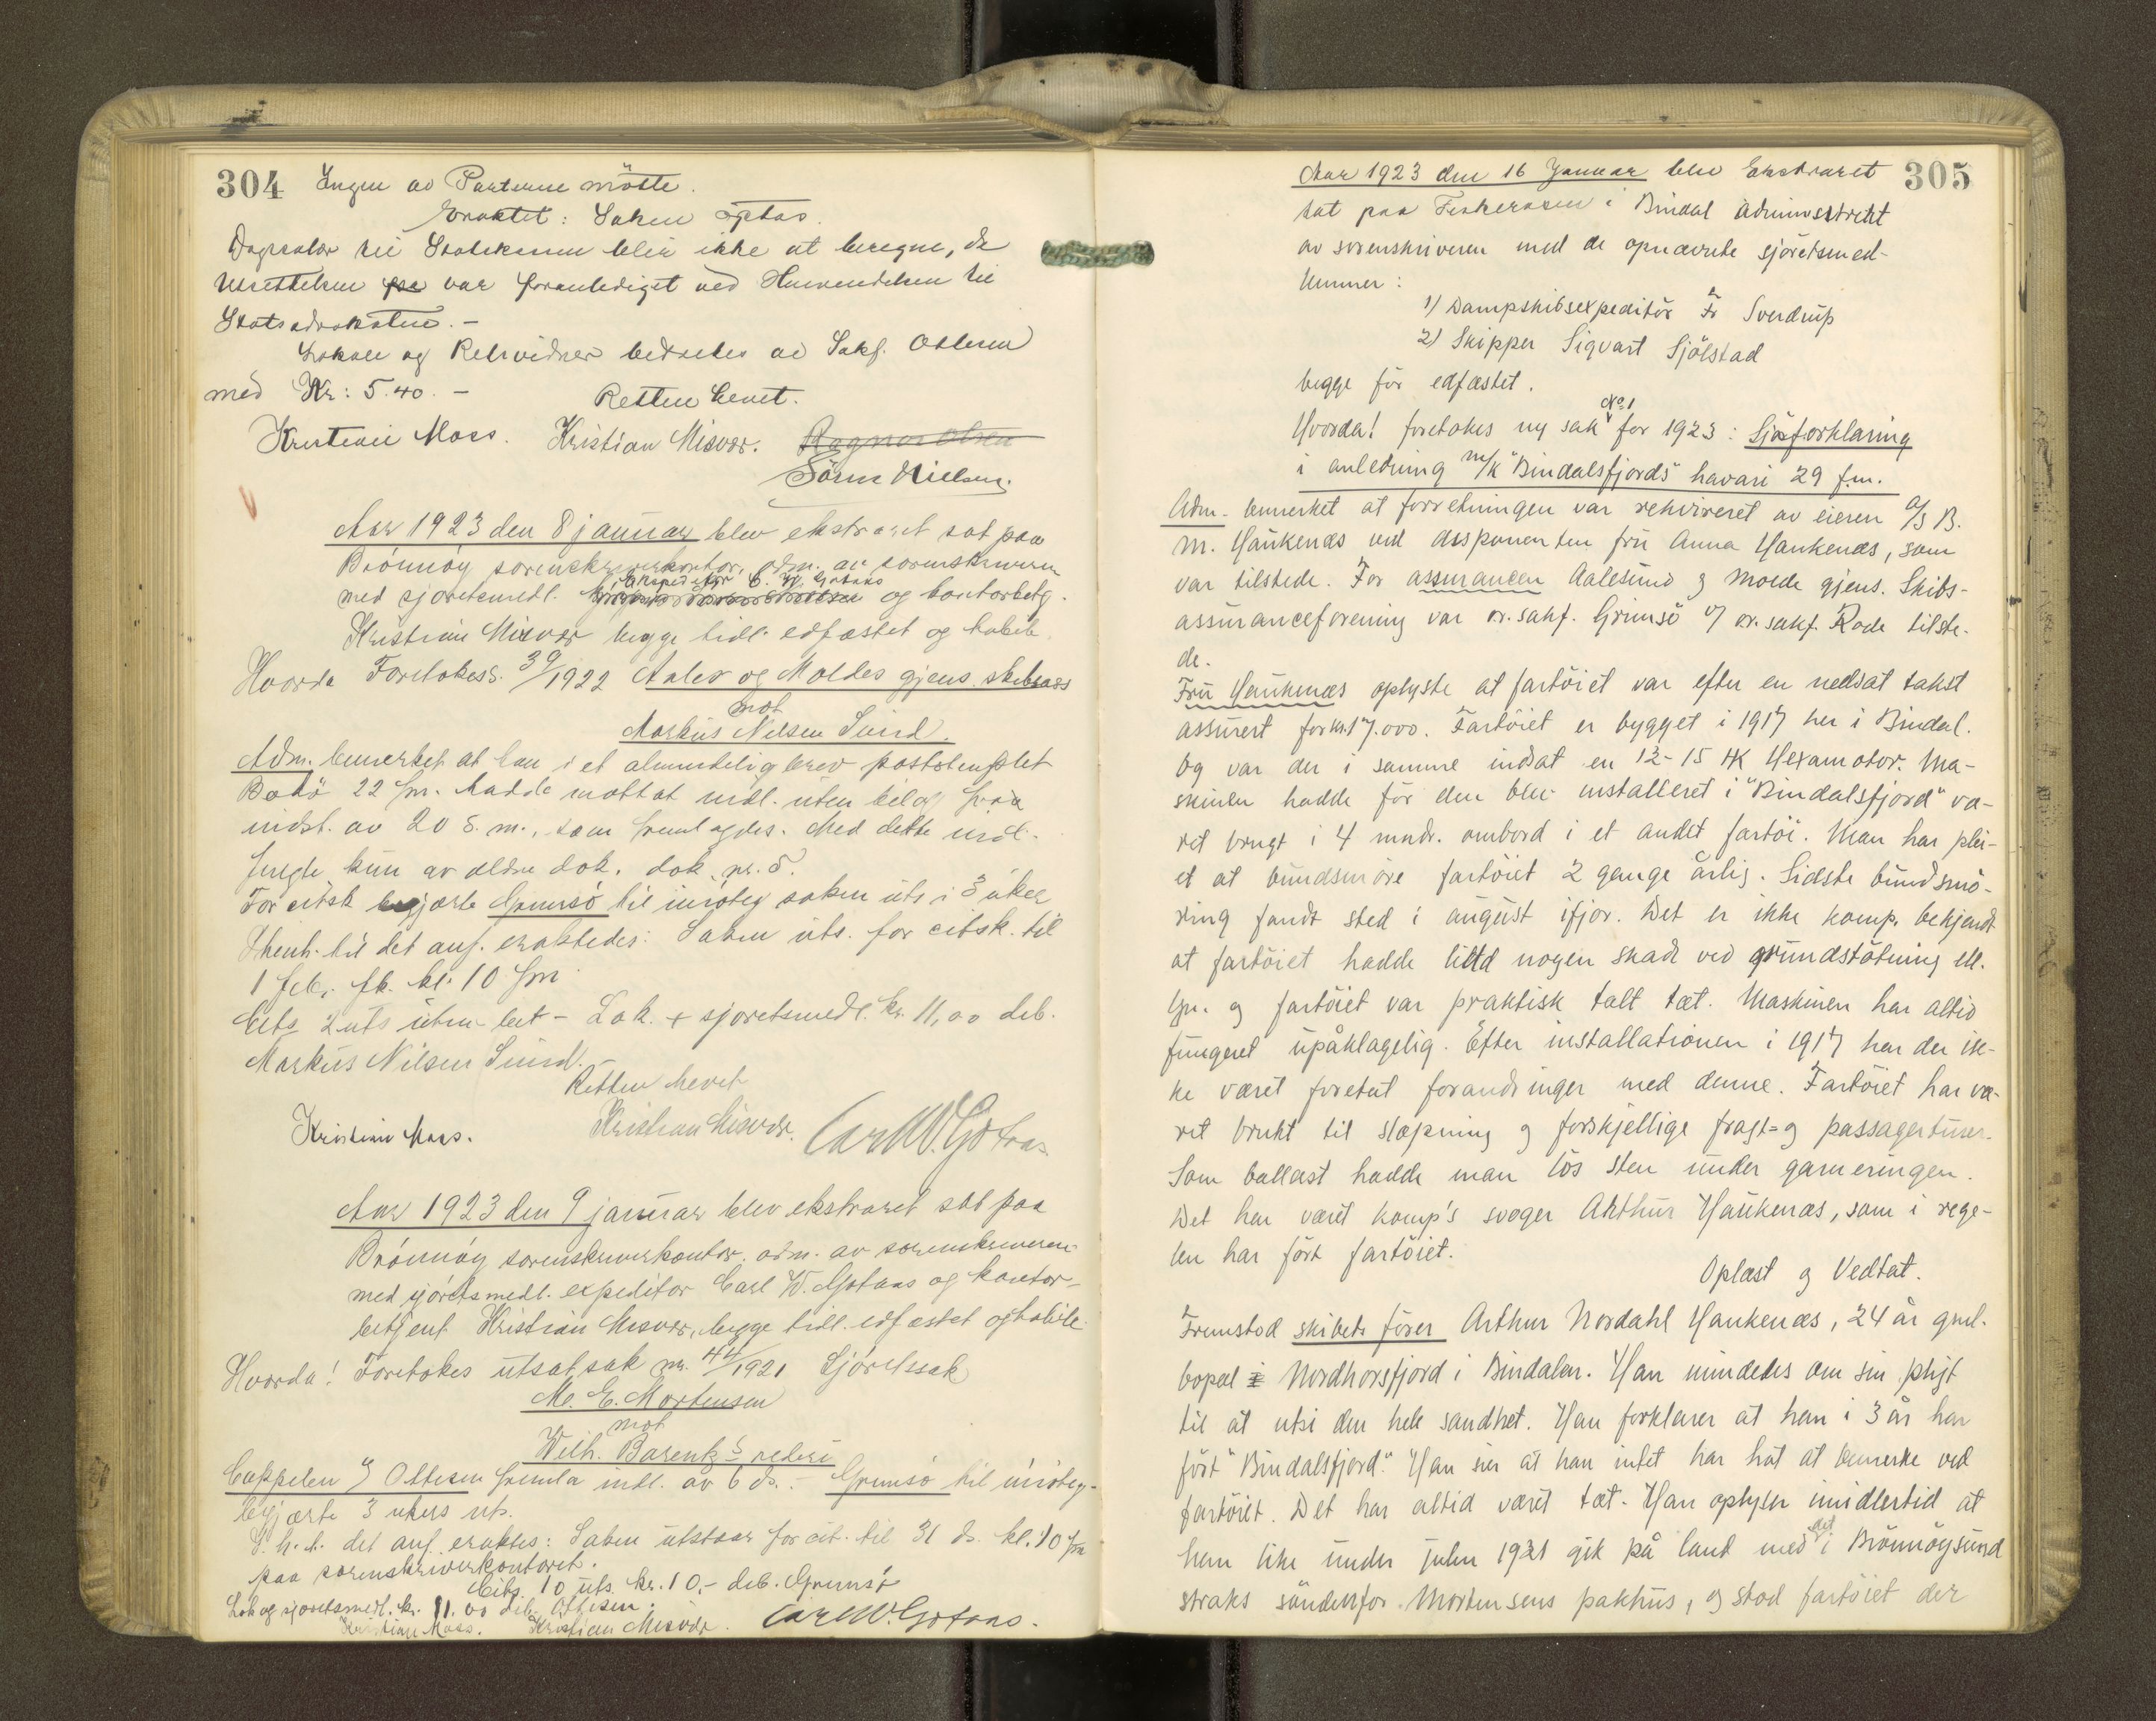 304
Ingen av Parterne mötte.
Eraktet: Saken optas.
Dagsalær til Statskassen blir ikke at beregne, da
Utsættelsen var foranlediget ved Henvendelsen til
Statsadvokaten. –
Lokale og Retsvidner betaltes av Sakf. Ottesen
med Kr: 5.40. –
Retten hævet.
Kristian Moss. Kristian Misvær. Ragnar Olsen
Sören Nielsen.
Aar 1923 den 8 januar blev ekstraret sat paa
Brönnöy sorenskriverkontor, adm. av sorenskriveren
Ekspeditör C. W. Gotaas
med sjøretsmedl. og kontorbetj.
Kristian Misvær begge tidl. edfæstet og habile.
Hvorda Foretokes s. 39/1922 Aales og Moldes gjens. skibsass
mot
Markus Nilsen Sund.
Adm. bemerket at han i et almindelig brev poststemplet
Bodö 22 f.m. hadde mottat indl. uten bilag fra
indst. av 20 s.m., som fremlagdes. Med dette indl.
fulgte kun av ældre dok. dok. nr. 5.
For citsk. begjærte Grimsö til imöteg. saken uts. i 3 uker
I henh. til det anf. eraktedes: Saken uts. for citsk. til
1 feb. fk. kl. 10 fm
Cits 2 uts uten – Lok. + sjøretsmedl. kr. 11,00 deb.
Markus Nilsen Sund. –
Retten hævet
Kristian Moss. Kristian Misvær. Carl W. Gotaas
Aar 1923 den 9 januar blev ekstraret sat paa
Brönnöy sorenskriverkontor, adm. av sorenskriveren
med sjöretsmedl. expeditör Carl W. Gotaas og kontor-
betjent Kristian Misvær, begge tidl. edfæstet og habile.
Hvorda! Foretokes utsat sak nr. 44/1921 Sjöretssak
M. E. Mortensen
mot
Wilh. Barentz's rederi
Cappelen & Ottesen fremla indl. av 6 ds. – Grimsö til imöteg.
begjærte 3 ukers uts.
I. h. t. det anf. eraktes: Saken utstaar for cit. til 31 ds. kl. 10 fm
paa sorenskriverkontoret.
Cits. 10 uts. kr. 10,- deb. Grimsö
Lok og sjøretsmedl. kr. 11.00 deb. Ottesen.
Kristian Moss. Kristian Misvær. Carl W. Gotaas.
305
Aar 1923 den 16 Januar blev Ekstraret
sat paa Terråk i Bindal administrert
av sorenskriveren med de opnævnte sjöretsmed-
lemmer:
1) Dampskibsexpeditör Fr Sverdrup
2) Skipper Sigvart Sjölstad
begge för edfæstet.
No 1
Hvorda! foretokes ny sak for 1923: Sjøforklaring
i anledning m/k "Bindalsfjords" havari 29 f.m.
Adm. bemerket at forretningen var rekvireret av eieren A/S B.
M. Haukenæs ved disponenten fru Anna Haukenæs, som
var tilstede. For assurancen Aalesund og Molde gjens. Skibs-
assuranceforening var o.r.sakf. Grimsö v/ o.r.sakf. Rode tilste-
de.
Fru Haukenæs oplyste at fartöiet var efter en nedsat takst
assurert for kr. 17.000. Fartöiet er bygget i 1917 her i Bindal.
Og var der i samme indsat en 12-15 HK Hexamotor. Ma-
skinen hadde för den blev installeret i "Bindalsfjord" væ-
ret brugt i 4 mndr. ombord i et andet fartöi. Man har plei-
et at bundsmöre fartöiet 2 gange årlig. Sidste bundsmö-
ring fandt sted i august ifjor. Det er ikke komp. bekjendt
at fartöiet hadde lidt nogen skade ved grundstötning ell.
lgn. og fartöiet var praktisk talt tæt. Maskinen har altid
fungeret upåklagelig. Efter installationen i 1917 har der ik-
ke været foretat forandringer med denne. Fartöiet har væ-
ret brukt til slæpning og forskjellige fragt- og passagerturer.
Som ballast hadde man lös sten under garneringen.
Det har været komp's svoger Arthur Haukenæs, som i rege-
len har fört fartöiet.
Oplæst og Vedtat.
Fremstod skibets förer Arthur Nordahl Haukenæs, 24 år gml.
bopæl Nordhorsfjord i Bindalen. Han mindedes om sin pligt
til at utsi den hele sandhet. Han forklarer at han i 3 år har
fört "Bindalsfjord." Han sier at han intet har hat at bemerke ved
fartöiet. Det har altid været tæt. Han oplyser imidlertid at
han like under julen 1921 gik på land med det i Brönnöysund
straks söndenfor Mortensens pakhus, og stod fartöiet der